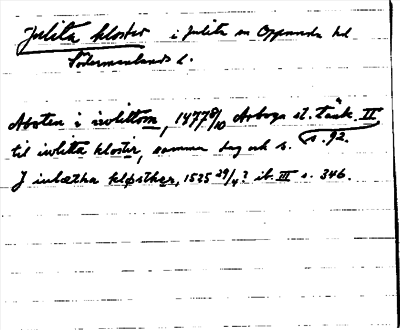 Julita kloster i Julita sn Oppunda hd
Södermanlands l.
Aboten i iwlittom, 1477 8/10 Arboga st. tänk. II
til iwlitta kloster, samma dag och s. s. 92.
J iulætha kløsther, 1525 29/4? ib. III s. 346.